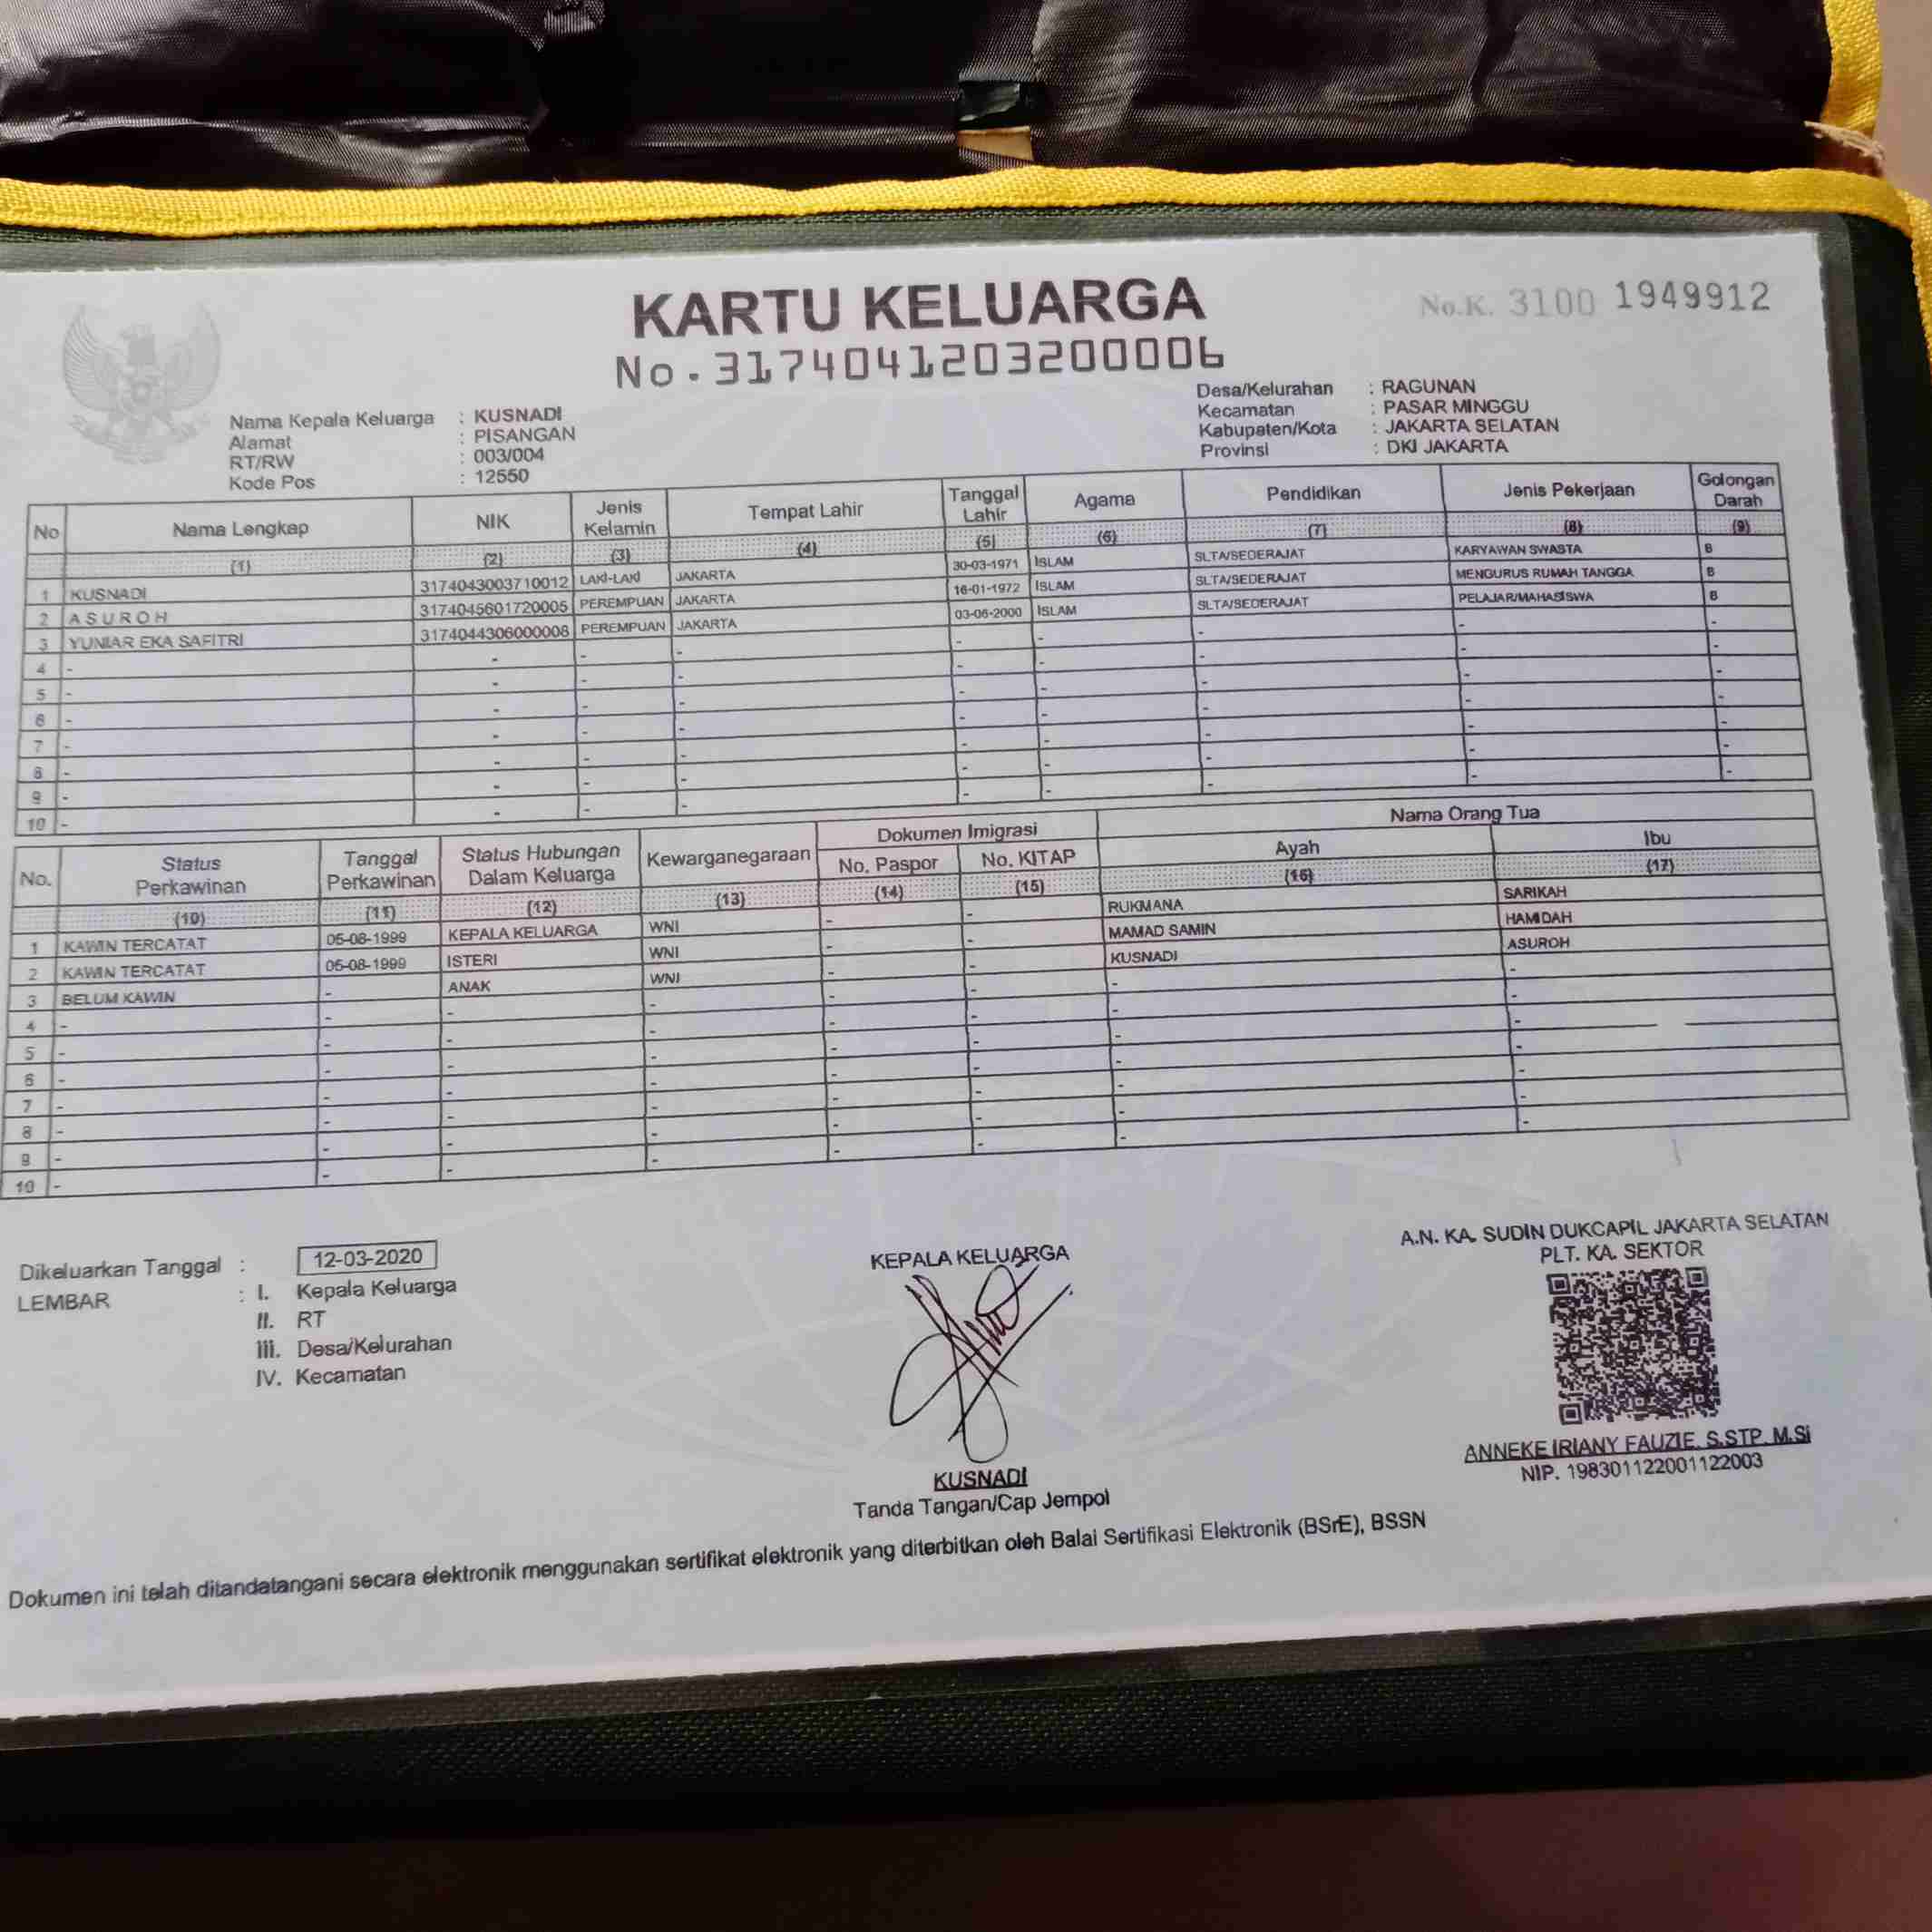 KARTU KELUARGA
No.K. 3100 1949912
No.3174041203200006
Nama Kepala Keluarga : KUSNADI
Alamat : PISANGAN
RT/RW : 003/004
Kode Pos : 12550
Desa/Kelurahan : RAGUNAN
Kecamatan : PASAR MINGGU
Kabupaten/Kota : JAKARTA SELATAN
Provinsi : DKI JAKARTA
No Nama Lengkap NIK Jenis Kelamin Tempat Lahir Tanggal Lahir Agama Pendidikan Jenis Pekerjaan Golongan Darah
(1) (2) (3) (4) (5) (6) (7) (8) (9)
1 KUSNADI 3174043003710012 LAKI-LAKI JAKARTA 30-03-1971 ISLAM SLTA/SEDERAJAT KARYAWAN SWASTA B
2 ASUROH 3174045601720005 PEREMPUAN JAKARTA 16-01-1972 ISLAM SLTA/SEDERAJAT MENGURUS RUMAH TANGGA B
3 YUNIAR EKA SAFITRI 3174044306000008 PEREMPUAN JAKARTA 03-06-2000 ISLAM SLTA/SEDERAJAT PELAJAR/MAHASISWA B
4 - - - - - - - - -
5 - - - - - - - - -
6 - - - - - - - - -
7 - - - - - - - - -
8 - - - - - - - - -
9 - - - - - - - - -
10 - - - - - - - - -
No. Status Perkawinan Tanggal Perkawinan Status Hubungan Dalam Keluarga Kewarganegaraan Dokumen Imigrasi No. Paspor No. KITAP Nama Orang Tua Ayah Ibu
(10) (11) (12) (13) (14) (15) (16) (17)
1 KAWIN TERCATAT 05-08-1999 KEPALA KELUARGA WNI - - RUKMANA SARIKAH
2 KAWIN TERCATAT 05-08-1999 ISTERI WNI - - MAMAD SAMIN HAMIDAH
3 BELUM KAWIN - ANAK WNI - - KUSNADI ASUROH
4 - - - - - - - -
5 - - - - - - - -
6 - - - - - - - -
7 - - - - - - - -
8 - - - - - - - -
9 - - - - - - - -
10 - - - - - - - -
Dikeluarkan Tanggal : 12-03-2020
LEMBAR : I. Kepala Keluarga
II. RT
III. Desa/Kelurahan
IV. Kecamatan
KEPALA KELUARGA
KUSNADI
Tanda Tangan/Cap Jempol
A.N. KA. SUDIN DUKCAPIL JAKARTA SELATAN
PLT. KA. SEKTOR
ANNEKE IRIANY FAUZIE, S.STP, M.Si
NIP. 198301122001122003
Dokumen ini telah ditandatangani secara elektronik menggunakan sertifikat elektronik yang diterbitkan oleh Balai Sertifikasi Elektronik (BSrE), BSSN